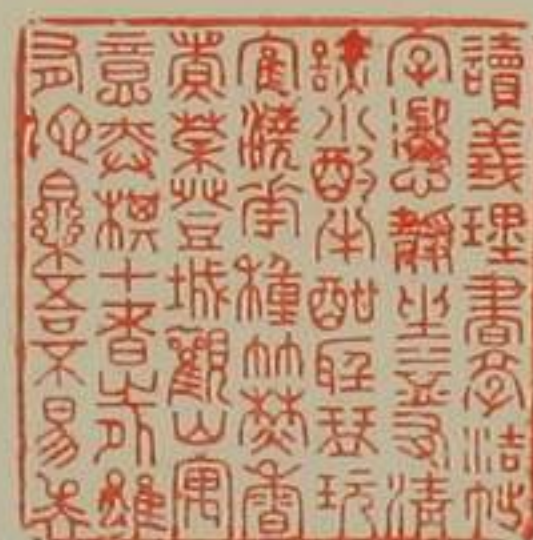 讀義理書學法帖
字澄心靜坐益友清
談小酌半醺聽琴玩
鶴澆花種竹焚香
煑茶登城觀山寓
意弈棋十者之外雖
有他樂吾不易矣